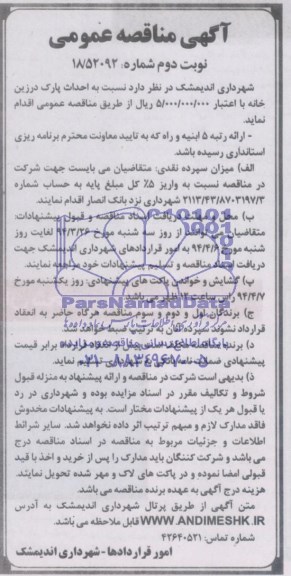 آگهی مناقصه عمومی
نوبت دوم شماره: ۱۸/۵۲۰۹۲
شهرداری اندیمشک در نظر دارد نسبت به احداث پارک درزین
خانه با اعتبار ۵/۰۰۰/۰۰۰/۰۰۰ ریال از طریق مناقصه عمومی اقدام
نماید.
- ارائه رتبه ۵ ابنیه و راه که به تایید معاونت محترم برنامه ریزی
استانداری رسیده باشد.
الف) میزان سپرده نقدی: متقاضیان می بایست جهت شرکت
در مناقصه نسبت به واریز ۵٪ کل مبلغ پایه به حساب شماره
۲۱۱۳/۴۳/۸۷۰۳۱۹۷/۳ شهرداری نزد بانک انصار اقدام نمایند.
ب) محل و مهلت دریافت اسناد مناقصه و قبول پیشنهادات:
متقاضیان می توانند از روز سه شنبه مورخ ۹۴/۳/۲۶ لغایت روز
شنبه مورخ ۹۴/۴/۶ به امور قراردادهای شهرداری اندیمشک جهت
دریافت اسناد مناقصه و تسلیم پیشنهادات خود مراجعه نمایند.
پ) گشایش و خواندن پاکت های پیشنهادی: روز یکشنبه مورخ
۹۴/۴/۷ راس ساعت ۱۲ ظهر می باشد.
ج) برندگان اول و دوم و سوم مناقصه هرگاه حاضر به انعقاد
قرارداد نشوند سپرده آنان به ترتیب ضبط خواهد شد.
د) برنده مناقصه
پیشنهادی
ذ) بدیهی است شرکت در مناقصه و ارائه پیشنهاد به منزله قبول
شروط و تکالیف مقرر در اسناد مزایده بوده و شهرداری در رد
یا قبول هر یک از پیشنهادات مختار است. به پیشنهادات مخدوش
فاقد مدارک لازم و مبهم ترتیب اثر داده نخواهد شد. سایر شرائط
اطلاعات و جزئیات مربوط به مناقصه در اسناد مناقصه درج
می باشد و شرکت کنندگان باید مدارک را پس از خرید و اخذ با قید
قبولی امضا نموده و در پاکت های لاک و مهر شده تحویل نمایند.
هزینه درج آگهی به عهده برنده مناقصه می باشد.
متن آگهی از طریق پرتال شهرداری اندیمشک به آدرس
WWW.ANDIMESHK.IR قابل ملاحظه می باشد.
شماره تماس: ۴۲۶۴۰۵۲۱
امور قراردادها - شهرداری اندیمشک
ParsNamadData
۰۲۱-۸۸۳۴۹۶۷۰-۵